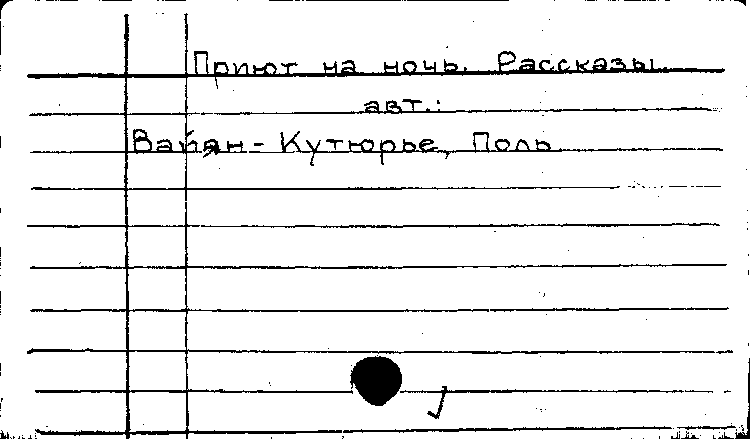 Приют на ночь. Рассказы.
авт.:
Вайян-Кутюрье, Поль